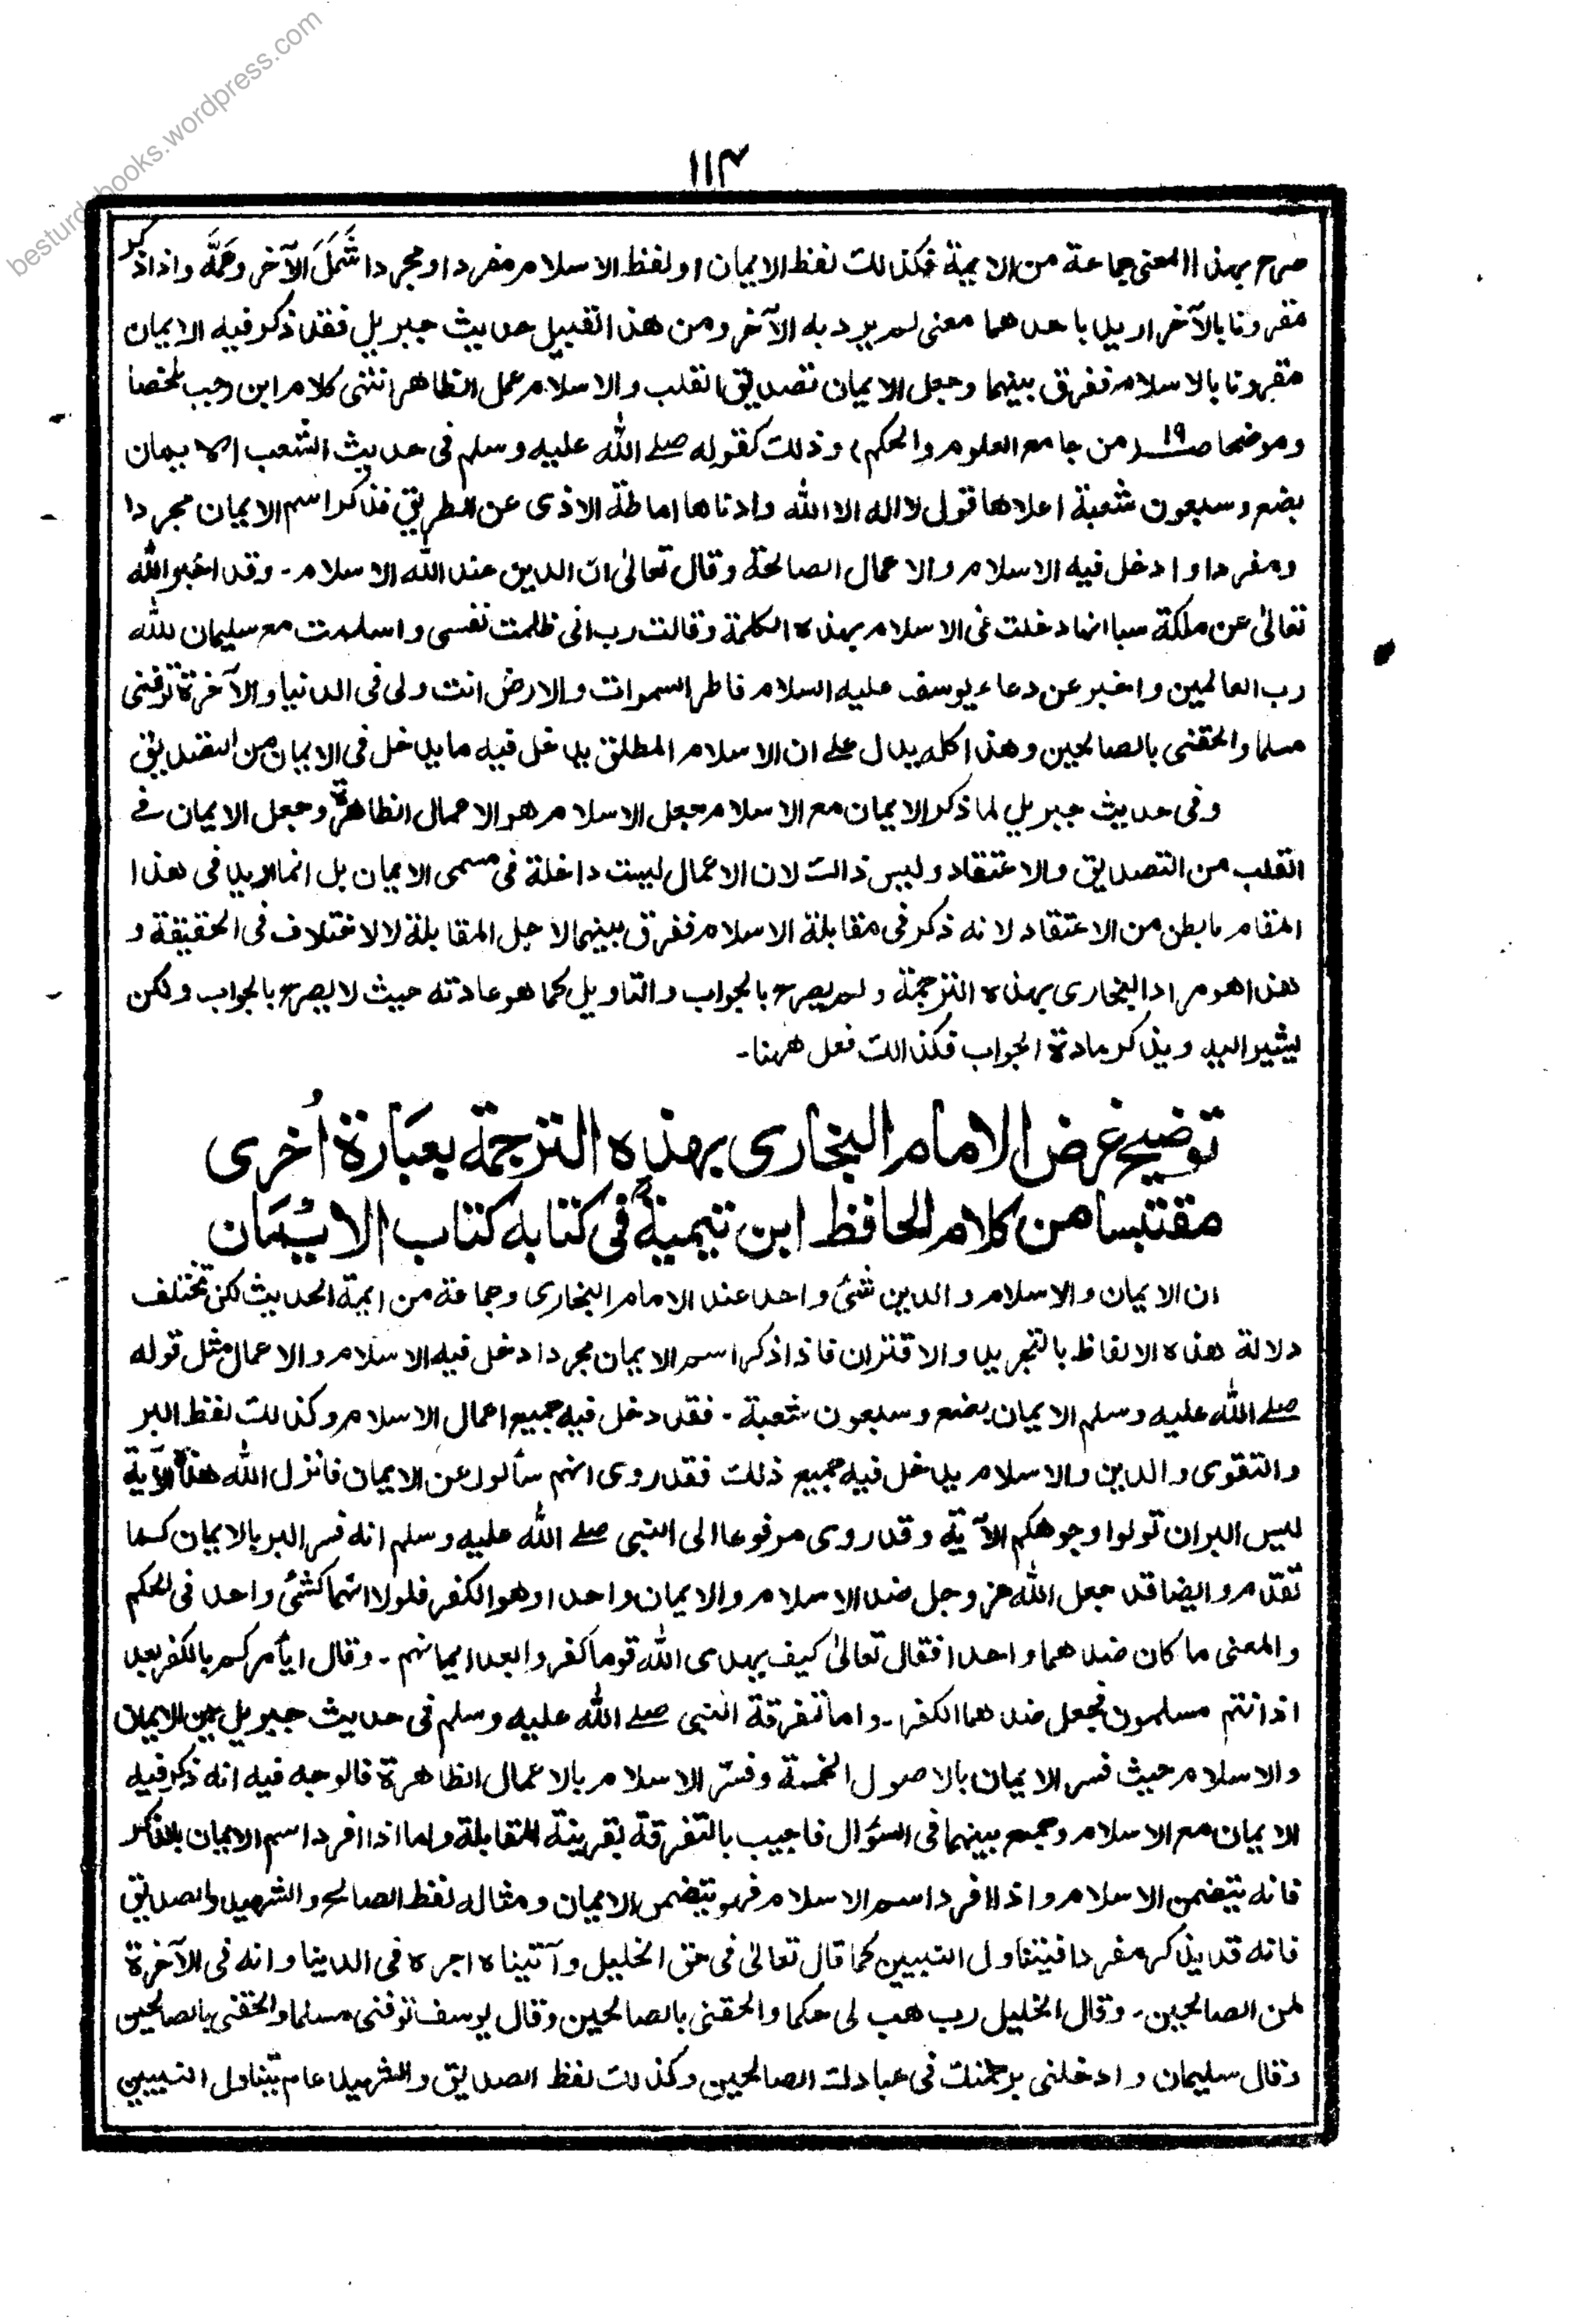 besturdubooks.wordpress.com
١١٤
صرح بهذا المعنى جماعة من الايمة فكذلك لفظ الايمان او لفظ الاسلام مفردا ومجردا شَمَلَ الآخر وعَمَّه واذا ذكر
مقرونا بالآخر اريد باحدهما معنى لم يرد به الآخر ومن هذا القبيل حديث جبريل فقد ذكر فيه الايمان
مقرونا بالاسلام ففرق بينهما وجعل الايمان تصديق القلب والاسلام عمل الظاهر انتهى كلام ابن رجب ملخصا
وموضحا صـ١٩ (من جامع العلوم والحكم) وذلك كقوله صلے الله عليه وسلم فى حديث الشعب الايمان
بضع وسبعون شعبة اعلاها قول لااله الا الله وادناها اماطة الاذى عن الطريق فذكر اسم الايمان مجردا
ومفردا وادخل فيه الاسلام والاعمال الصالحة وقال تعالىٰ ان الدين عند الله الاسلام ۔ وقد اخبر الله
تعالىٰ عن ملكة سبا انها دخلت فى الاسلام بهذه الكلمة وقالت رب انى ظلمت نفسى واسلمت مع سليمان لله
رب العالمين واخبر عن دعاء يوسف عليه السلام فاطر السموات والارض انت ولى فى الدنيا والآخرة توفنى
مسلما والحقنى بالصالحين وهذا كله يدل علے ان الاسلام المطلق يدخل فيه ما يدخل فى الايمان من التصديق
وفى حديث جبريل لما ذكر الايمان مع الاسلام جعل الاسلام هو الاعمال الظاهرة وجعل الايمان فے
القلب من التصديق والاعتقاد وليس ذالك لان الاعمال ليست داخلة فى مسمى الايمان بل انما اريد فى هذا
المقام ما بطن من الاعتقاد لانه ذكر فى مقابلة الاسلام ففرق بينهما لاجل المقابلة لا لاختلاف فى الحقيقة و
هذا هو مراد البخارى بهذه الترجمة ولم يصرح بالجواب والتاويل كما هو عادته حيث لا يصرح بالجواب ولكن
يشير اليه ويذكر مادة الجواب فكذالك فعل ههنا۔
توضيح غرض الامام البخارى بهذه الترجمة بعبَارة اُخرى
مقتبسا من كلام الحافظ ابن تيميةؒ فى كتابه كتاب الايْمَان
ان الايمان والاسلام والدين شئ واحد عند الامام البخارى وجماعة من ايمة الحديث لكن تختلف
دلالة هذه الالفاظ بالتجريد والاقتران فاذا ذكر اسم الايمان مجردا دخل فيه الاسلام والاعمال مثل قوله
صلے الله عليه وسلم الايمان بضع وسبعون شعبة ۔ فقد دخل فيه جميع اعمال الاسلام وكذلك لفظ البر
والتقوى والدين والاسلام يدخل فيه جميع ذلك فقد روى انهم سألوا عن الايمان فانزل الله هذه الآية
ليس البر ان تولوا وجوهكم الآية وقد روى مرفوعا الى النبى صلے الله عليه وسلم انه فسر البر بالايمان كما
تقدم وايضا قد جعل الله عز وجل ضد الاسلام والايمان واحدا وهو الكفر فلولا انهما كشئ واحد فى الحكم
والمعنى ما كان ضدهما واحدا فقال تعالىٰ كيف يهدى الله قوما كفروا بعد ايمانهم ۔ وقال ايأمركم بالكفر بعد
اذ انتم مسلمون فجعل ضدهما الكفر ۔ واما تفرقة النبى صلے الله عليه وسلم فى حديث جبريل بين الايمان
والاسلام حيث فسر الايمان بالاصول الخمسة وفسّر الاسلام بالاعمال الظاهرة فالوجه فيه انه ذكر فيه
الايمان مع الاسلام وجمع بينهما فى السؤال فاجيب بالتفرقة بقرينة المقابلة واما اذا افرد اسم الايمان بالذكر
فانه يتضمن الاسلام واذا افرد اسم الاسلام فهو يتضمن الايمان ومثاله لفظ الصالح والشهيد والصديق
فانه قد يذكر مفردا فيتناول النبيين كما قال تعالىٰ فى حق الخليل وآتيناه اجره فى الدينا وانه فى الآخرة
لمن الصالحين ۔ وقال الخليل رب هب لى حكما والحقنى بالصالحين وقال يوسف توفنى مسلما والحقنى بالصالحين
وقال سليمان وادخلنى برحمتك فى عبادك الصالحين وكذلك لفظ الصديق والشهيد عام يتناول النبيين